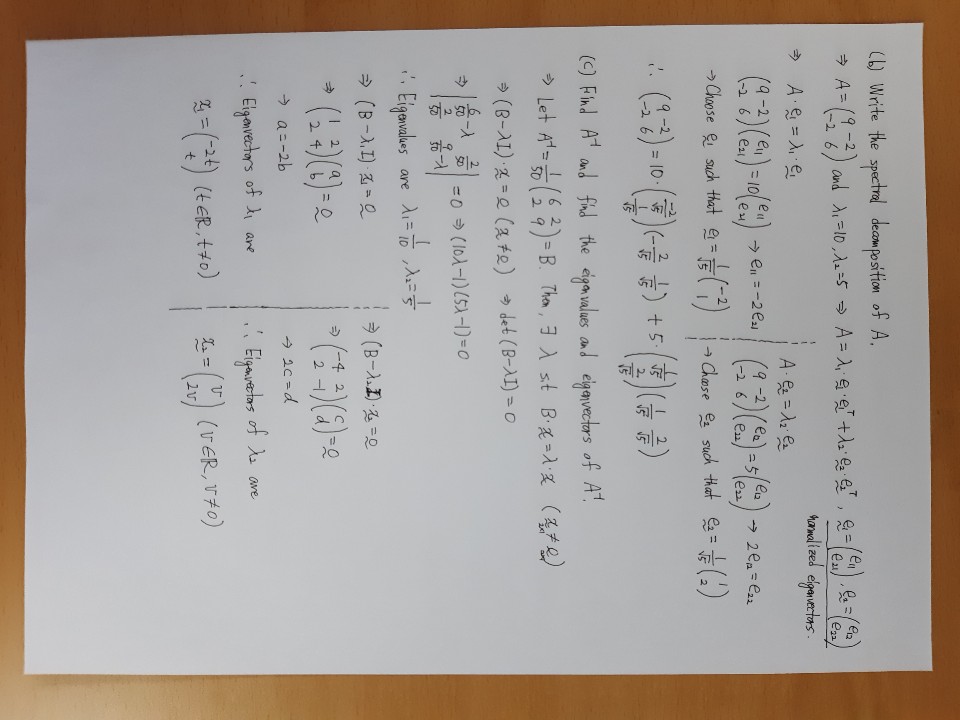 (b) Write the spectral decomposition of A.
⇒ A = (9 -2 / -2 6) and λ₁=10, λ₂=5 ⇒ A = λ₁·e₁·e₁ᵀ + λ₂·e₂·e₂ᵀ, e₁ = (e₁₁ / e₂₁), e₂ = (e₁₂ / e₂₂)
normalized eigenvectors.
⇒ A·e₁ = λ₁·e₁
(9 -2 / -2 6)(e₁₁ / e₂₁) = 10(e₁₁ / e₂₁) → e₁₁ = -2e₂₁
→ Choose e₁ such that e₁ = 1/√5 (-2 / 1)
A·e₂ = λ₂·e₂
(9 -2 / -2 6)(e₁₂ / e₂₂) = 5(e₁₂ / e₂₂) → 2e₁₂ = e₂₂
→ Choose e₂ such that e₂ = 1/√5 (1 / 2)
∴ (9 -2 / -2 6) = 10·(-2/√5 / 1/√5)(-2/√5 1/√5) + 5·(1/√5 / 2/√5)(1/√5 2/√5)
(c) Find A⁻¹ and find the eigenvalues and eigenvectors of A⁻¹.
⇒ Let A⁻¹ = 1/50 (6 2 / 2 9) = B. Then, ∃ λ s.t B·x = λ·x (x ≠ 0) 2×1 2×1
⇒ (B-λI)·x = 0 (x ≠ 0) ⇒ det(B-λI) = 0
⇒ |6/50 -λ 2/50 / 2/50 9/50 -λ| = 0 ⇒ (10λ-1)(5λ-1) = 0
∴ Eigenvalues are λ₁ = 1/10, λ₂ = 1/5
⇒ (B-λ₁I)·x₁ = 0
⇒ (1 2 / 2 4)(a / b) = 0
→ a = -2b
∴ Eigenvectors of λ₁ are
x₁ = (-2t / t) (t∈ℝ, t≠0)
⇒ (B-λ₂I)·x₂ = 0
⇒ (-4 2 / 2 -1)(c / d) = 0
→ 2c = d
∴ Eigenvectors of λ₂ are
x₂ = (v / 2v) (v∈ℝ, v≠0)